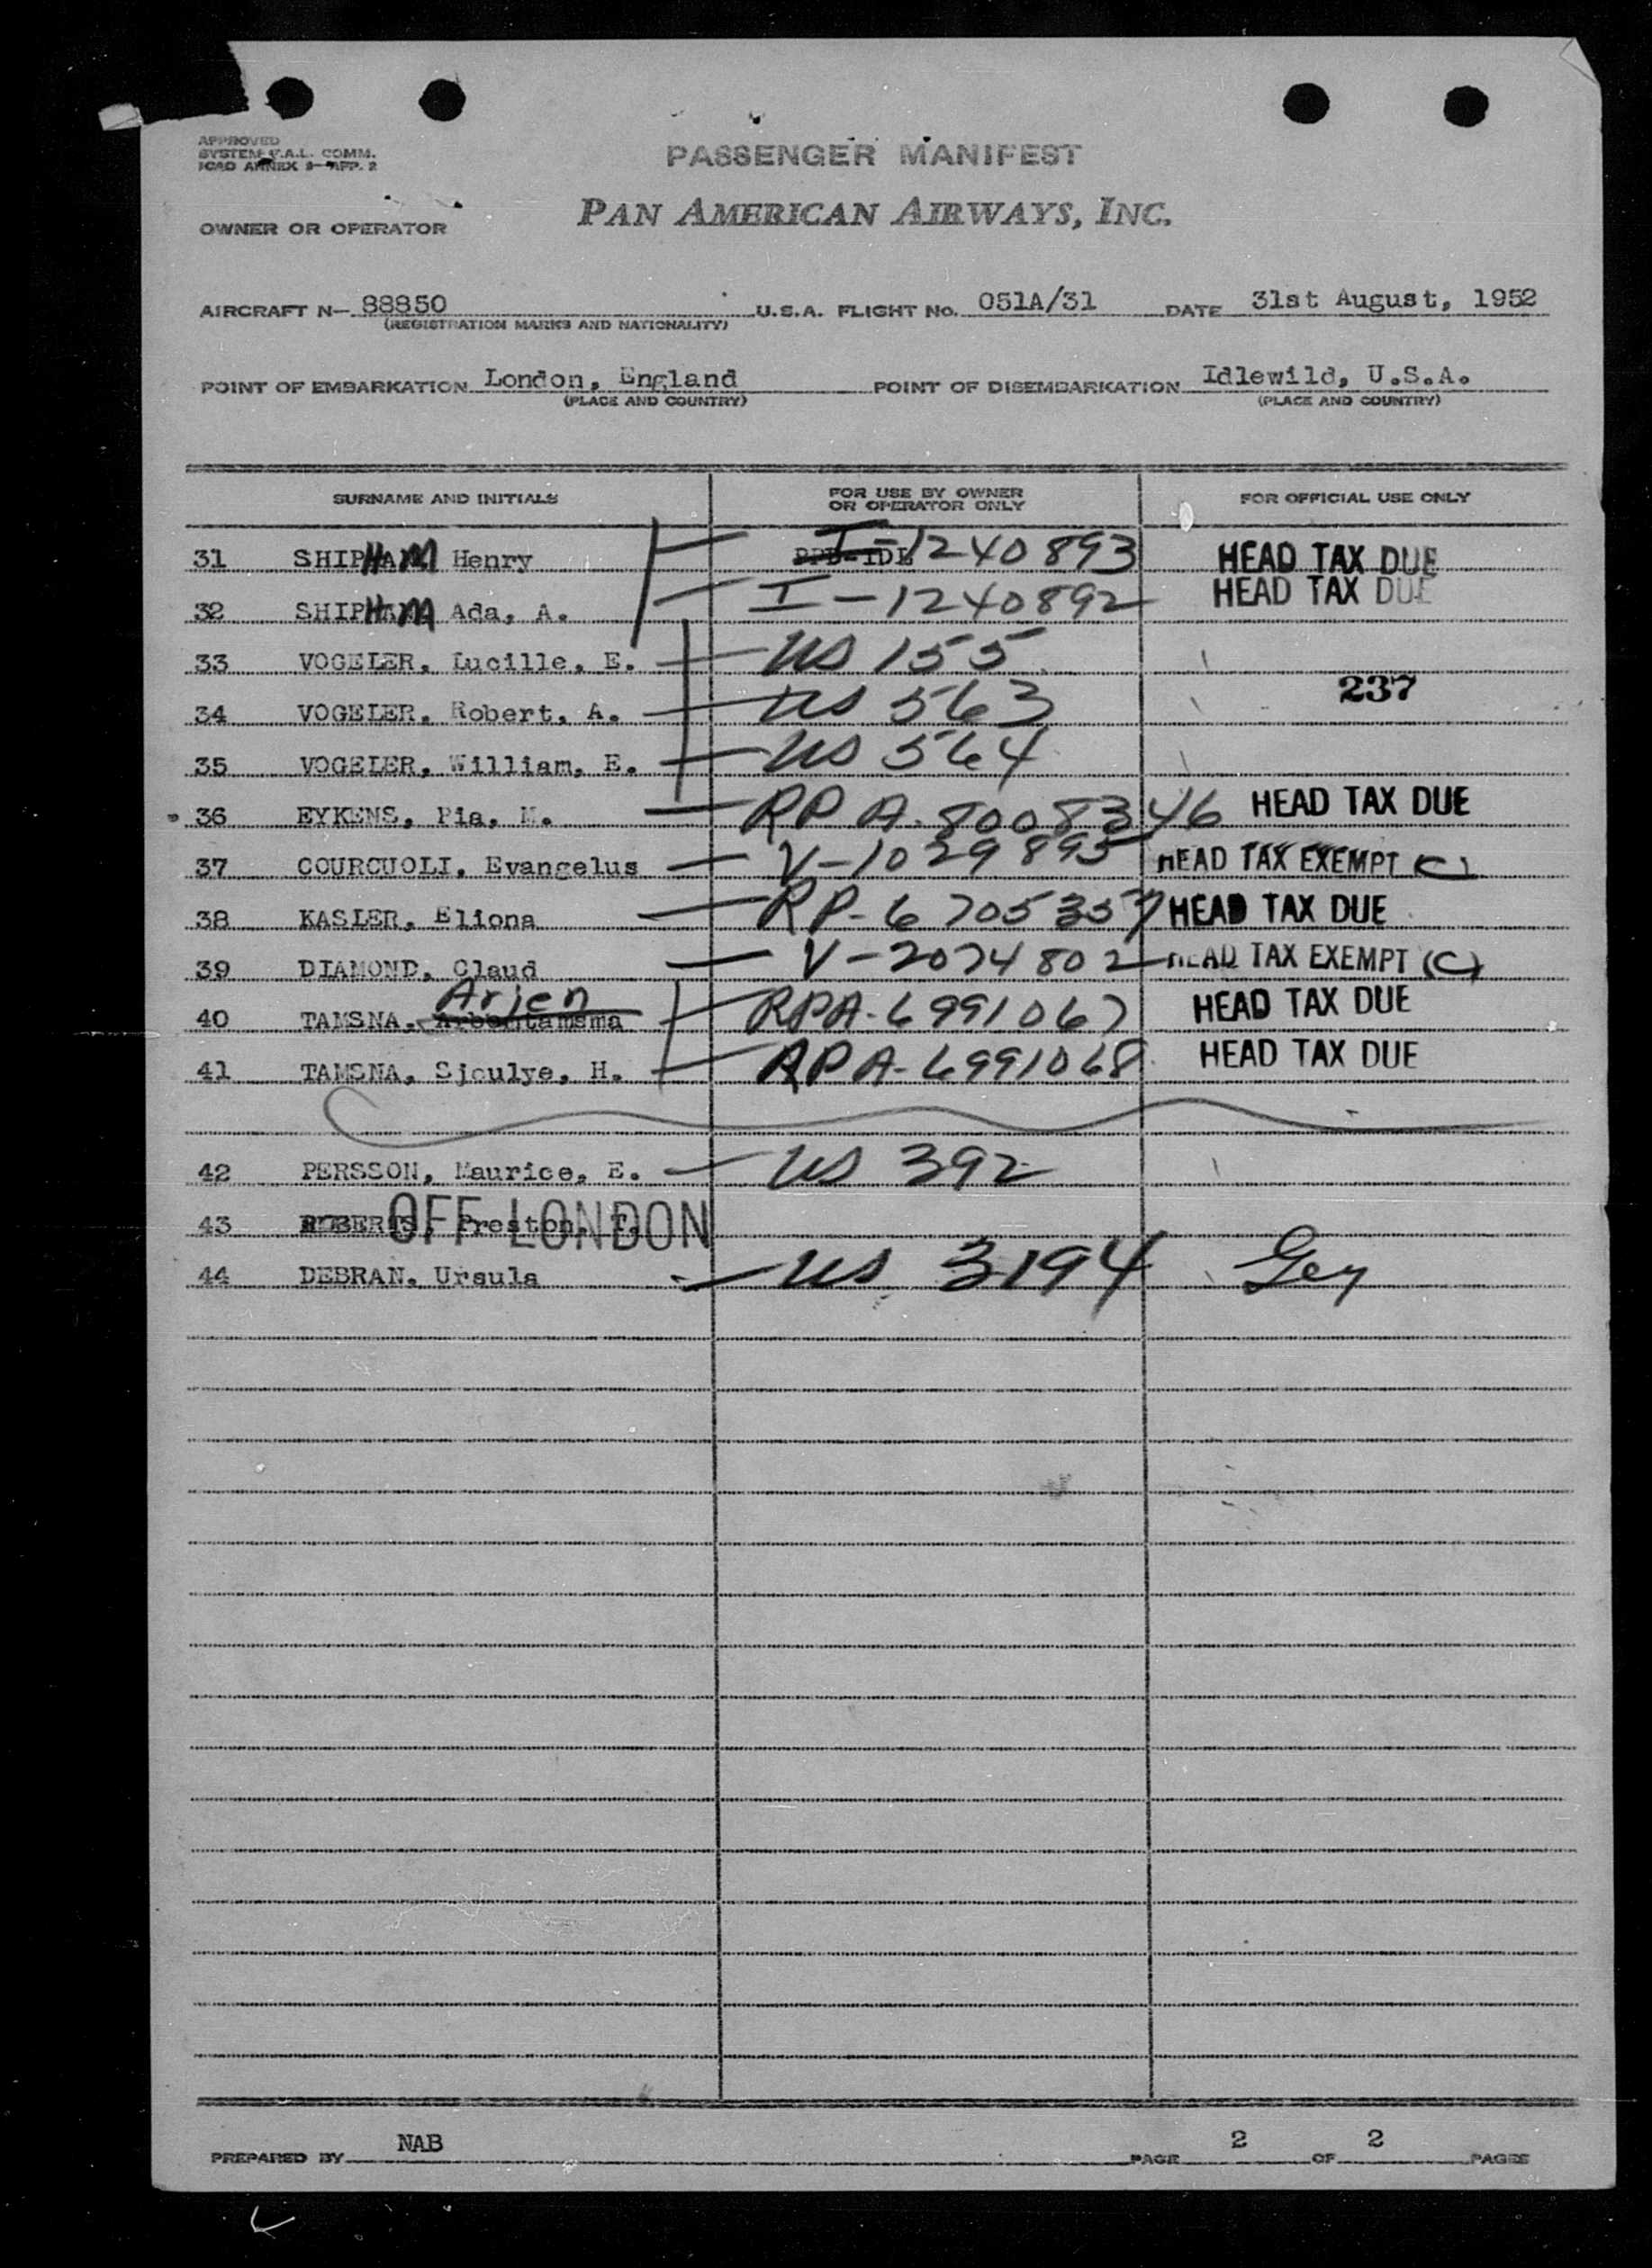 APPROVED
SYSTEM F.A.L. COMM.
ICAO ANNEX 9— APP. 2
PASSENGER MANIFEST
PAN AMERICAN AIRWAYS, INC.
OWNER OR OPERATOR
AIRCRAFT N— 88850 U.S.A. FLIGHT No. 051A/31 DATE 31st August, 1952
(REGISTRATION MARKS AND NATIONALITY)
POINT OF EMBARKATION London, England POINT OF DISEMBARKATION Idlewild, U.S.A.
(PLACE AND COUNTRY) (PLACE AND COUNTRY)
SURNAME AND INITIALS FOR USE BY OWNER OR OPERATOR ONLY FOR OFFICIAL USE ONLY
31 SHIPHAM Henry I-1240893 HEAD TAX DUE
32 SHIPHAM Ada, A. I-1240892 HEAD TAX DUE
33 VOGELER, Lucille, E. US 155
34 VOGELER, Robert, A. US 563 237
35 VOGELER, William, E. US 564
36 EYKENS, Pia, M. RP A-8008346 HEAD TAX DUE
37 COURCUOLI, Evangelus V-1029895 HEAD TAX EXEMPT (C)
38 KASLER, Eliona RP-6705357 HEAD TAX DUE
39 DIAMOND, Claud V-2074802 HEAD TAX EXEMPT (C)
Arjen
40 TAMSNA, Arbentamsma RPA-6991067 HEAD TAX DUE
41 TAMSNA, Sjoulye, H. RPA-6991068 HEAD TAX DUE
42 PERSSON, Maurice, E. US 392
43 ROBERTS, Preston, T. OFF LONDON
44 DEBRAN, Ursula US 3194
PREPARED BY NAB PAGE 2 OF 2 PAGES